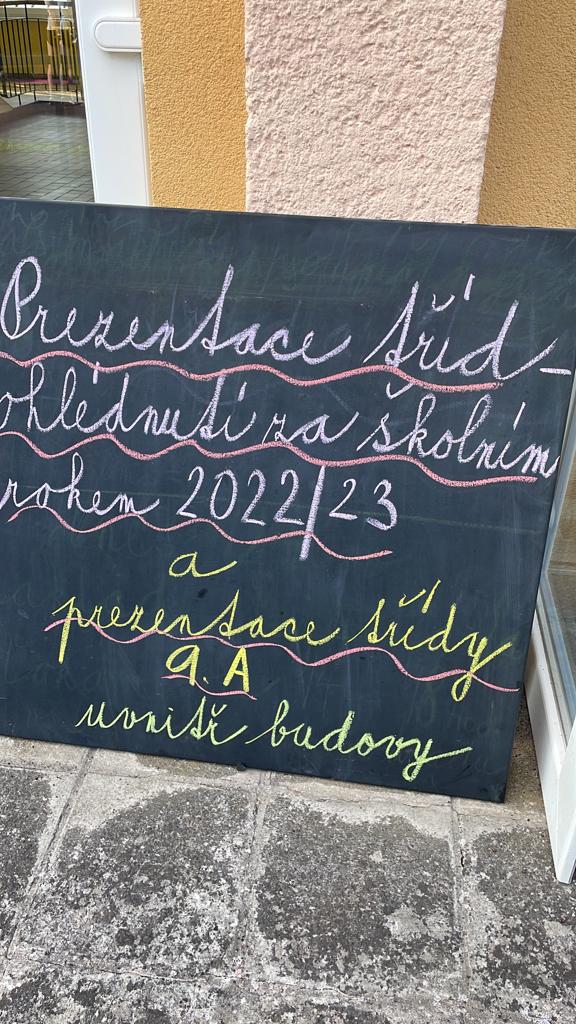 Prezentace tříd-
ohlédnutí za školním
rokem 2022/23
a
prezentace třídy
9. A
uvnitř budovy